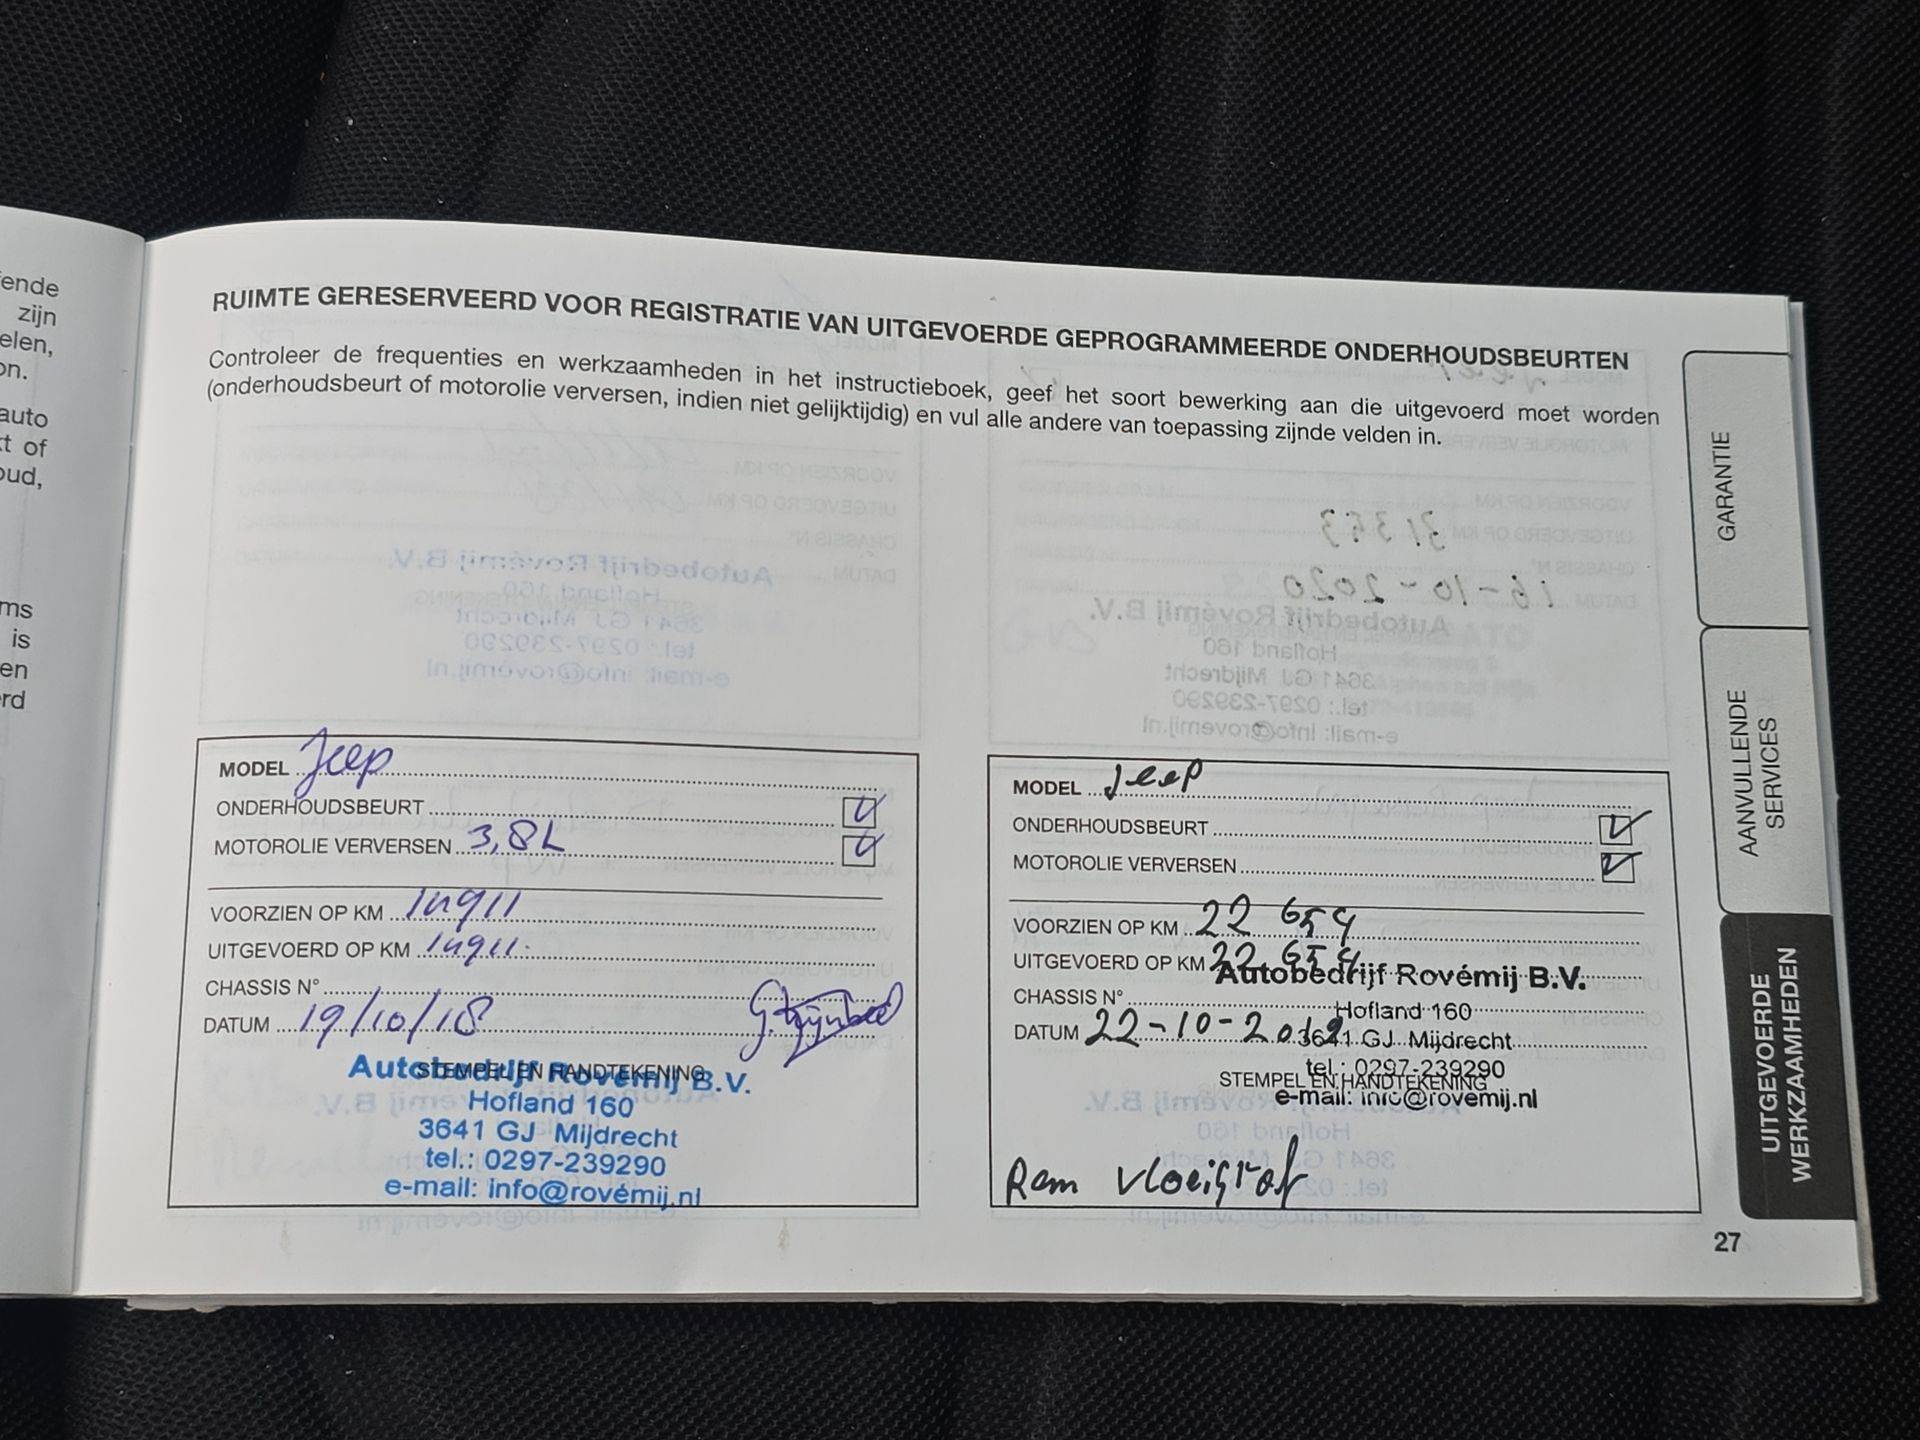 ende
zijn
elen,
on.
auto
kt of
oud,
ms
is
en
rd
RUIMTE GERESERVEERD VOOR REGISTRATIE VAN UITGEVOERDE GEPROGRAMMEERDE ONDERHOUDSBEURTEN
Controleer de frequenties en werkzaamheden in het instructieboek, geef het soort bewerking aan die uitgevoerd moet worden
(onderhoudsbeurt of motorolie verversen, indien niet gelijktijdig) en vul alle andere van toepassing zijnde velden in.
MODEL Jeep
ONDERHOUDSBEURT
MOTOROLIE VERVERSEN 3,8L
VOORZIEN OP KM 14911
UITGEVOERD OP KM 14911
CHASSIS N°
DATUM 19/10/18
STEMPEL EN HANDTEKENING
Autobedrijf Rovémij B.V.
Hofland 160
3641 GJ Mijdrecht
tel.: 0297-239290
e-mail: info@rovémij.nl
MODEL Jeep
ONDERHOUDSBEURT
MOTOROLIE VERVERSEN
VOORZIEN OP KM 22 654
UITGEVOERD OP KM 22 654
CHASSIS N°
DATUM 22-10-2019
STEMPEL EN HANDTEKENING
Autobedrijf Rovémij B.V.
Hofland 160
3641 GJ Mijdrecht
tel.: 0297-239290
e-mail: info@rovemij.nl
Rem vloeistof
GARANTIE
AANVULLENDE
SERVICES
UITGEVOERDE
WERKZAAMHEDEN
27